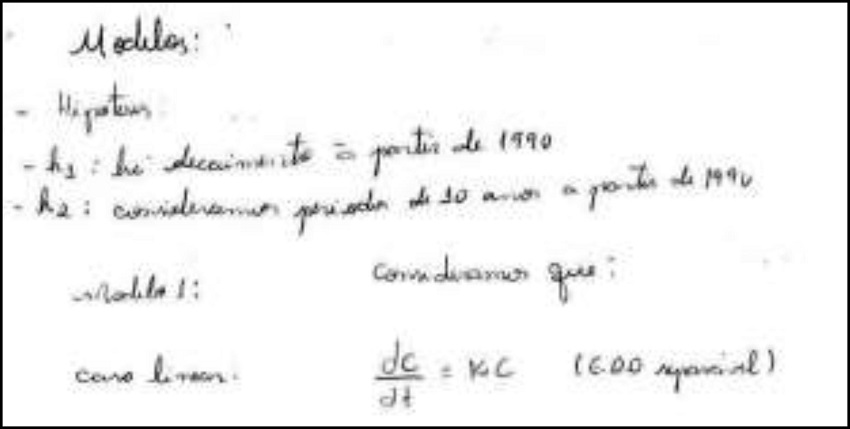 Modelos:
- Hipóteses:
- h1 : há decaimento à partir de 1990
- h2 : consideramos períodos de 10 anos a partir de 1990
Modelo 1: Consideramos que:
caso linear. dC/dt = K.C (EDO separável)